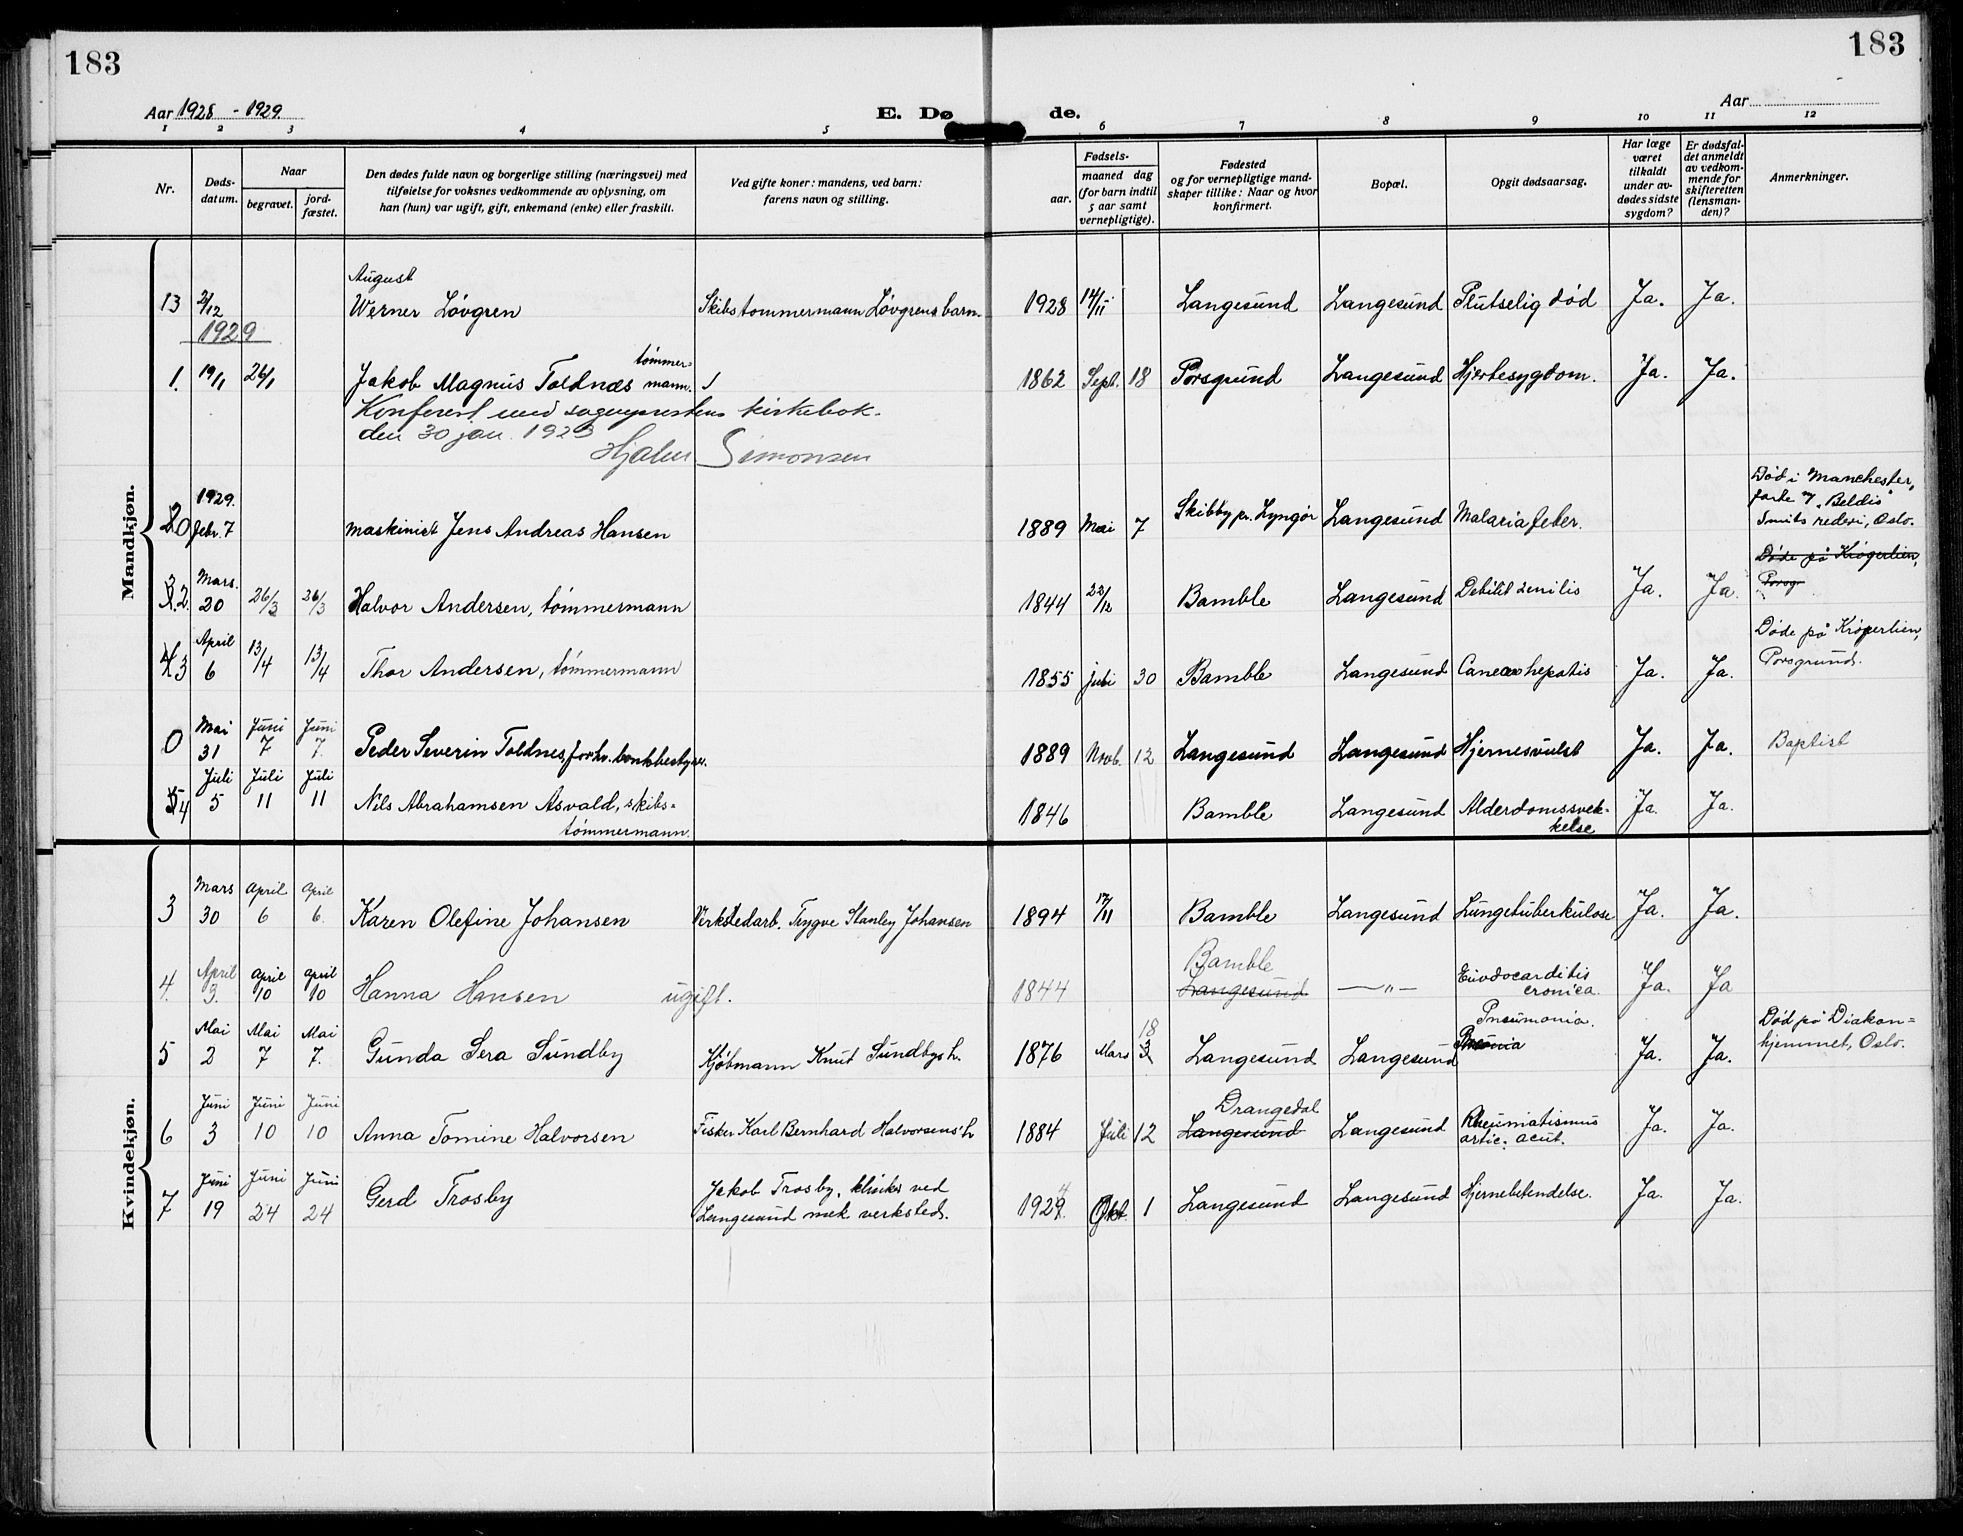 183
183
Aar 1928 - 1929.
E. Dø de.
Aar
1 2 3 4 5 6 7 8 9 10 11 12
Nr.
Døds-
datum.
Naar
begravet.
jord-
fæstet.
Den dødes fulde navn og borgerlige stilling (næringsvei) med
tilføielse for voksnes vedkommende av oplysning, om
han (hun) var ugift, gift, enkemand (enke) eller fraskilt.
Ved gifte koner: mandens, ved barn:
farens navn og stilling.
Fødsels-
aar.
maaned dag
(for barn indtil
5 aar samt
vernepligtige).
Fødested
og for vernepligtige mand-
skaper tillike: Naar og hvor
konfirmert.
Bopæl.
Opgit dødsaarsag.
Har læge
været
tilkaldt
under av-
dødes sidste
sygdom?
Er dødsfal-
det anmeldt
av vedkom-
mende for
skifteretten
(lensman-
den)?
Anmerkninger.
Mandkjøn.
August
13 2/12 Werner Løvgren Skibstømmermann Løvgrens barn. 1928 14/11 Langesund Langesund Plutselig død Ja. Ja.
1929
tømmer-
1. 19/1 26/1 Jakob Magnus Toldnæs mann. 1862 Sept. 18 Porsgrund Langesund Hjertesygdom. Ja. Ja.
Konferert med sogneprestens kirkebok.
den 30 jan. 1929
Hjalm Simonsen
1929.
Febr. 7 maskinist Jens Andreas Hansen 1889 Mai 7 Skibby pr. Lyngør Langesund Malariafeber.
Død i Manchester,
førte "Beldis"
Smits rederi, Oslo.
Mars.
20 26/3 26/3 Halvor Andersen, tømmermann 1844 22/12 Bamble Langesund Debilit senilis Ja. Ja.
Døde på Krøgerlien,
Porsgr
April
6 13/4 13/4 Thor Andersen, tømmermann 1855 juli 30 Bamble Langesund Cancer hepatis Ja. Ja.
Døde på Krøgerlien,
Porsgrund.
Mai Juni Juni
0 31 7 7. Peder Severin Toldnes, forhv. bankbestyrer. 1889 Novb. 12 Langesund Langesund Hjernesvulst Ja. Ja. Baptist
Juli Juli Juli
5 11 11 Nils Abrahamsen Asvald, skibs-
tømmermann. 1846 Bamble Langesund Alderdomssvek-
kelse Ja. Ja.
Kvindekjøn.
Mars April April
3 30 6 6. Karen Olefine Johansen Verkstedarb. Trygve Stanley Johansen 1894 17/11 Bamble Langesund Lungetuberkulose Ja. Ja.
April April April Bamble
4. 3. 10 10 Hanna Hansen ugift. 1844 Langesund —„— Endocarditis
cronica. Ja. Ja
Mai Mai Mai 18 Pneumonia.
5 2 7 7. Gunda Sera Sundby Kjøbmann Knut Sundbys h. 1876 Mars 3 Langesund Langesund Ja. Ja.
Død på Diakon-
hjemmet, Oslo.
Juni Juni Juni Drangedal
6 3 10 10 Anna Tomine Halvorsen Fisker Karl Bernhard Halvorsens h 1884 Juli 12 Langesund Langesund Rheumatismus
artic. acut. Ja. Ja.
Juni Juni Juni
7 19 24 24 Gerd Trosby Jakob Trosby, klinker ved
Langesund mek verksted. 1924 Okt. 1 Langesund Langesund Hjernebetendelse. Ja. Ja.